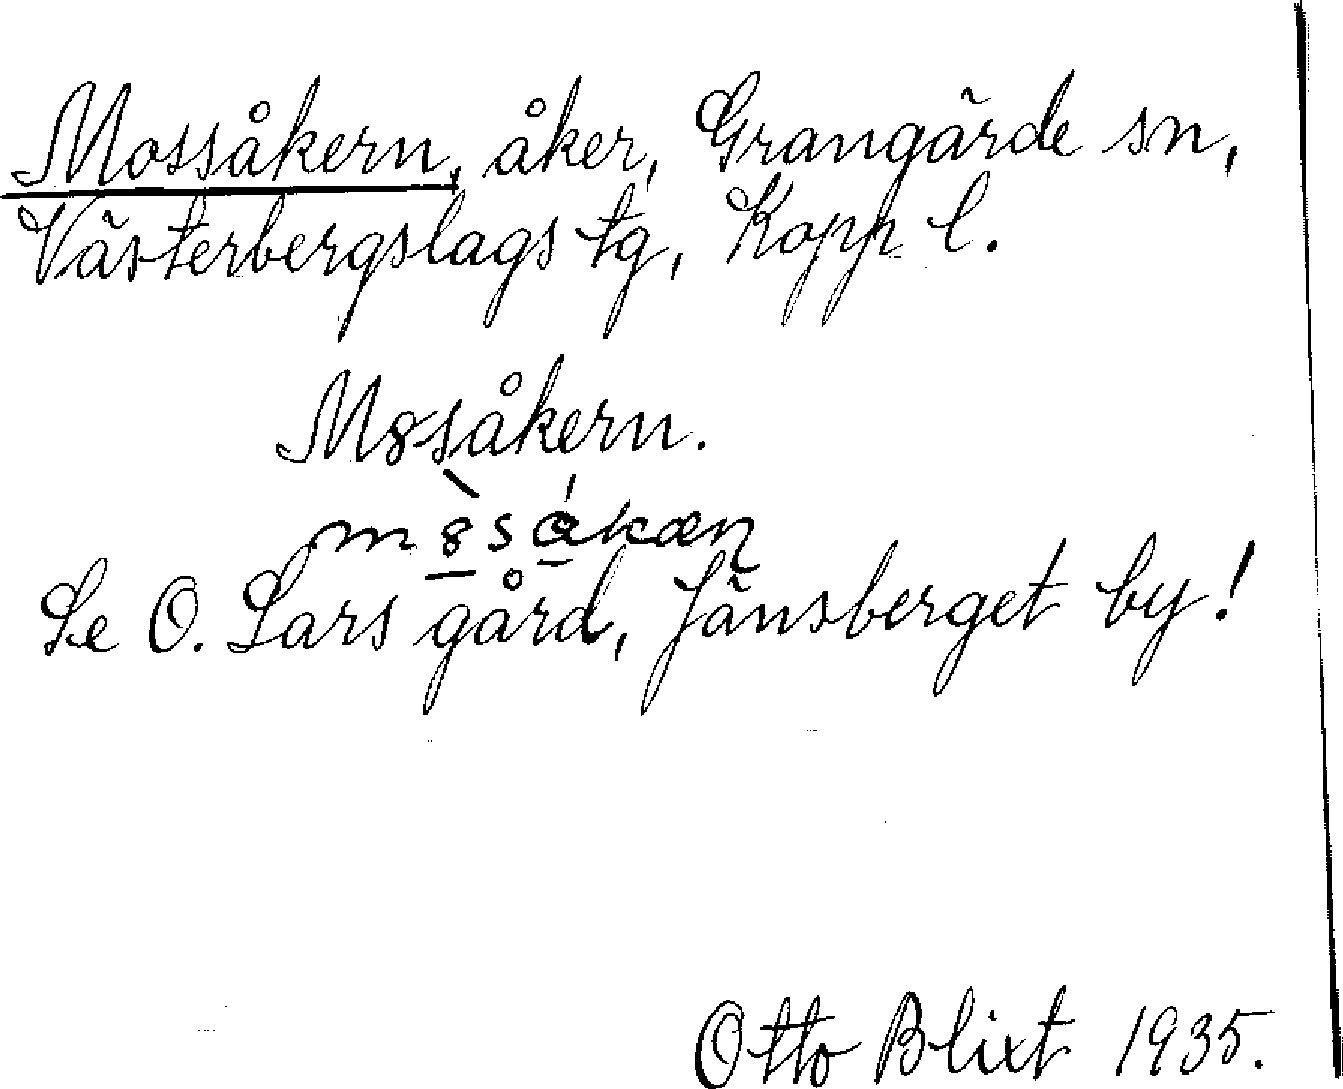 Mossåkern, åker, Grangärde sn,
Västerbergslags tg, Kopp l.
M8såkern.
m8såkæn
Se O. Lars gård, Jänsberget by!
Otto Blixt 1935.